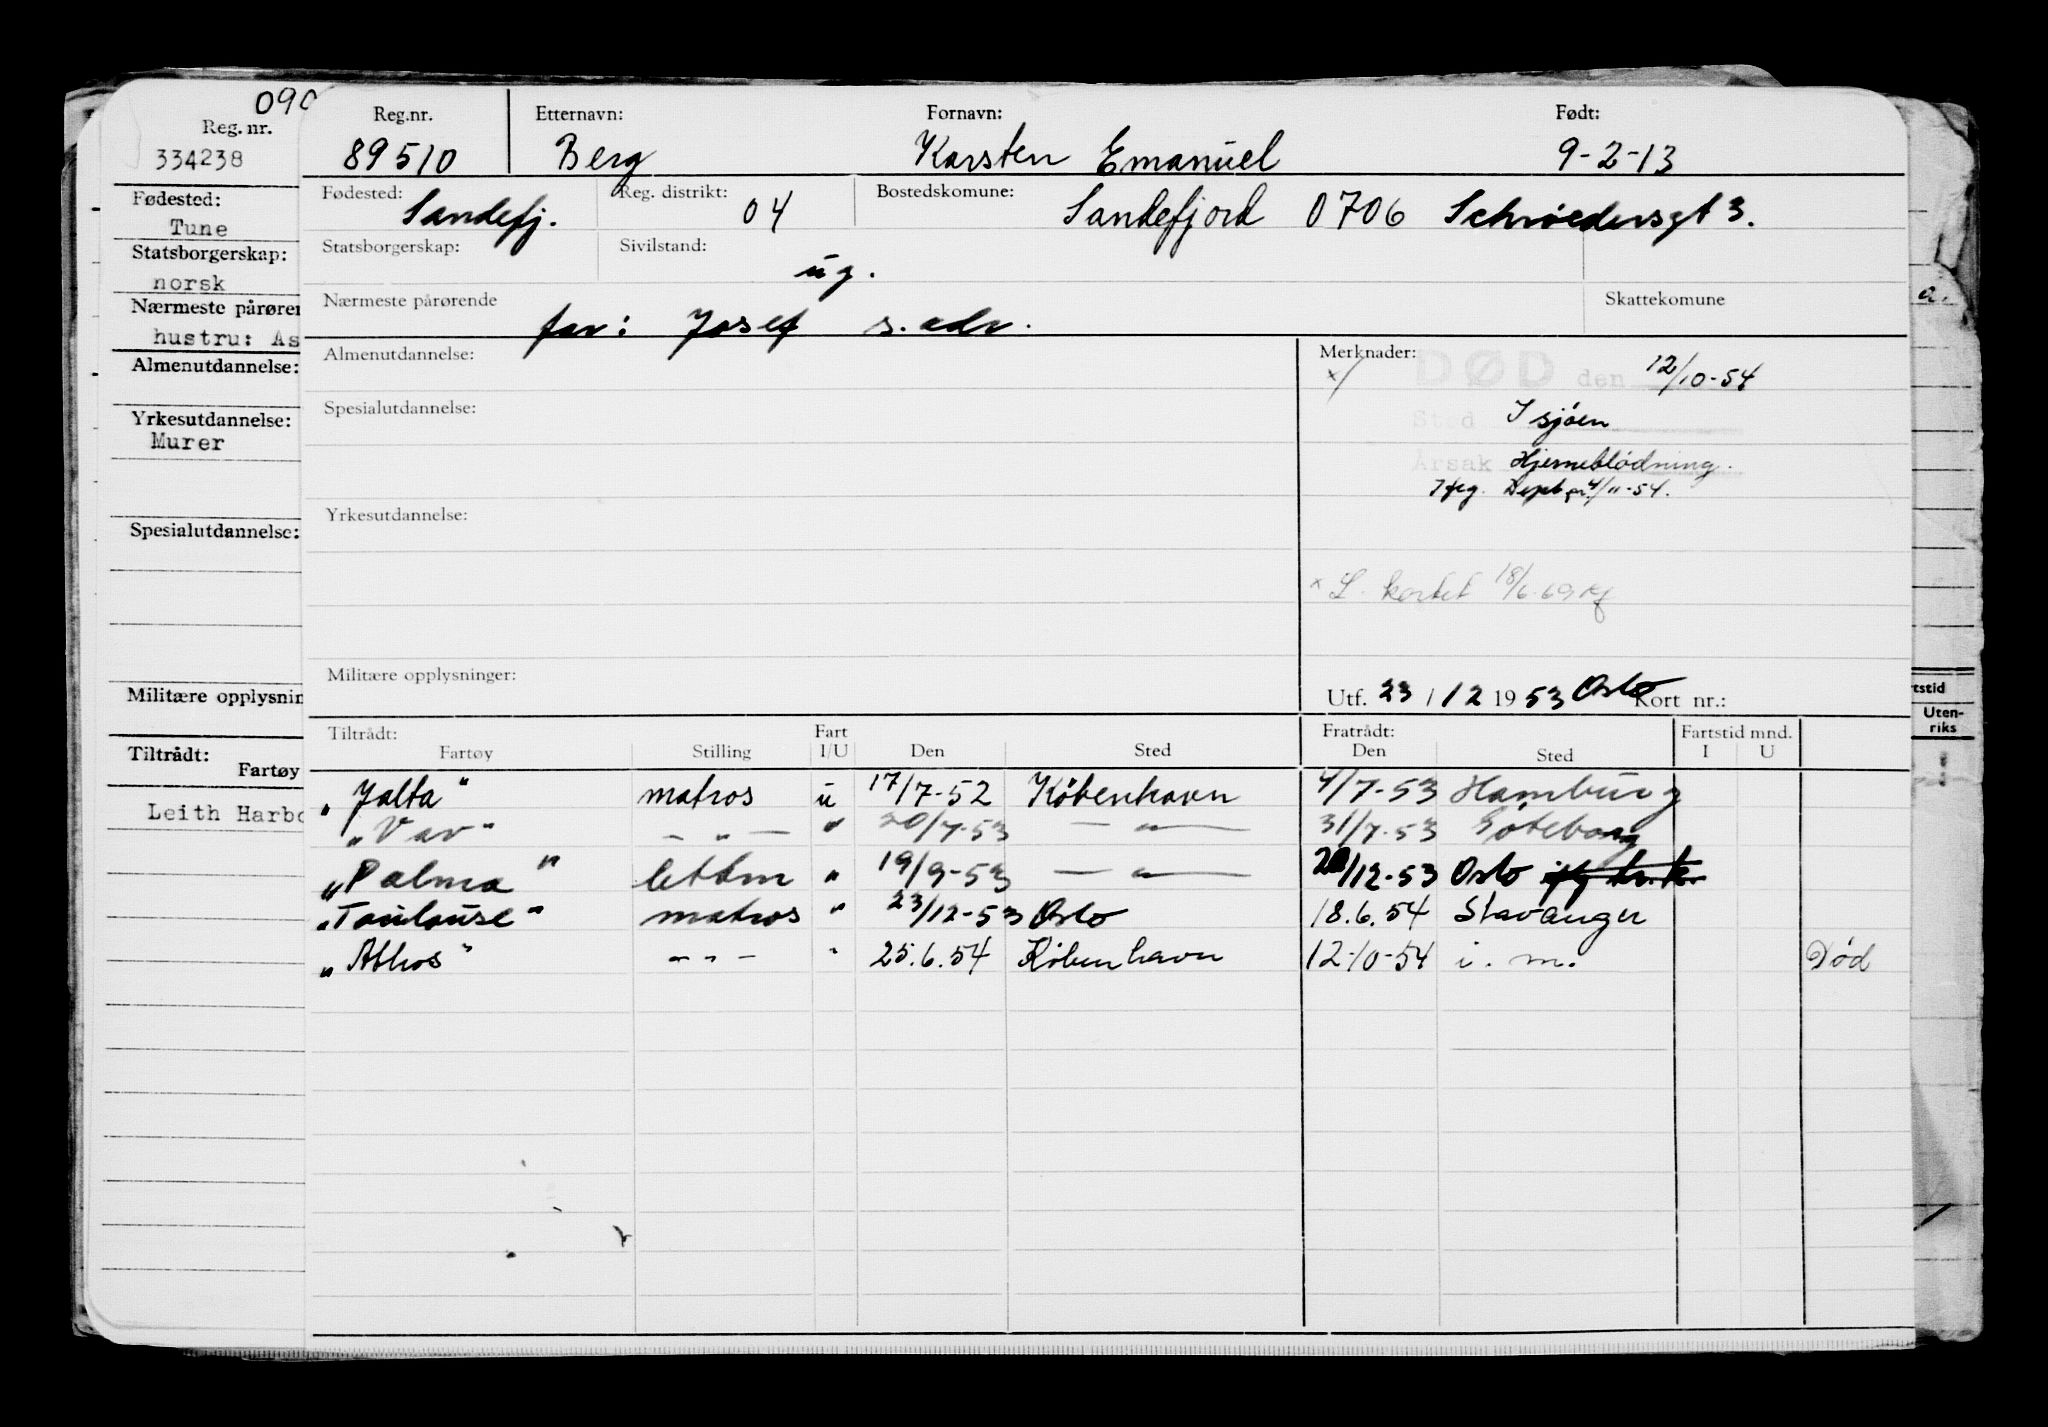 090
Reg. nr.
334238
Fødested:
Tune
Statsborgerskap:
norsk
Nærmeste pårøren
hustru: As
Almenutdannelse:
Yrkesutdannelse:
Murer
Spesialutdannelse:
Militære opplysnin
Tiltrådt:
Fartøy
Leith Harbo
Reg.nr. Etternavn: Fornavn: Født:
89510 Berg Karsten Emanuel 9-2-13
Fødested: Reg. distrikt: Bostedskomune:
Sandefj. 04 Sandefjord 0706 Schrøedersgt 3.
Statsborgerskap: Sivilstand:
ug.
Nærmeste pårørende Skattekomune
far: Josef s. adr.
Almenutdannelse: Merknader:
x/ DØD den 12/10-54
Spesialutdannelse:
Sted I sjøen
Årsak Hjerneblødning.
Ifg. Dept. 4/11-54.
Yrkesutdannelse:
x L. kortet 18/6-69
Militære opplysninger:
Utf. 23/12 1953 Oslo Kort nr.:
Tiltrådt: Fart Fratrådt: Fartstid mnd.
Fartøy Stilling I/U Den Sted Den Sted I U
"Jalta" matros u 17/7-52 København 4/7-53 Hamburg
"Vav" — " — " 20/7-53 — " — 31/7-53 Gøteborg
"Palma" lettm " 19/9-53 — " — 20/12-53 Oslo
"Toulouse" matros " 23/12-53 Oslo 18.6.54 Stavanger
"Athos" - - - " 25.6.54 København 12-10-54 i. m. Død
a.
rtstid
Uten-
riks